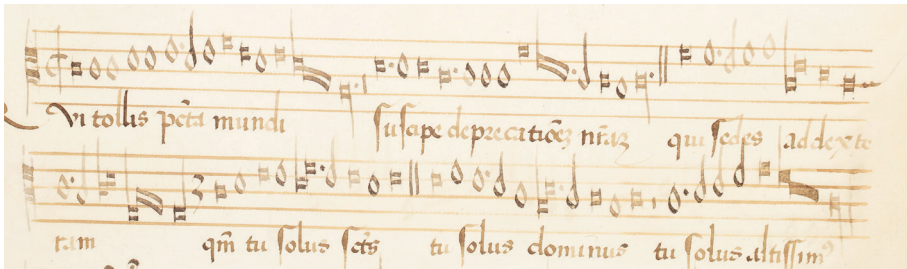 Vi tollis pcc̄ta mundi suscipe deprecatiōeȝ nr̄aȝ qui sedes ad dexte
ram qm̄ tu solus sc̄ts tu solus dominus tu solus altissimꝰ